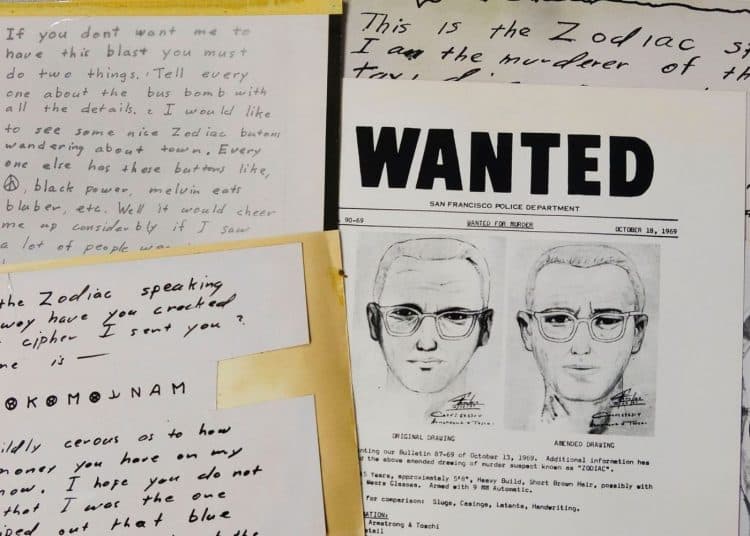 If you dont want me to
have this blast you must
do two things. 1 Tell every
one about the bus bomb with
all the details. 2 I would like
to see some nice Zodiac butons
wandering about town. Every
one else has these buttons like,
☮, black power, melvin eats
bluber, etc. Well it would cheer
me up considerbly if I saw
a lot of people
the Zodiac speaking
way have you cracked
cipher I sent you?
me is —
K M N A M
ildly cerous as to how
money you have on my
now. I hope you do not
that I was the one
iped out that blue
This is the Zodiac
I am the murderer of the
WANTED
SAN FRANCISCO POLICE DEPARTMENT
90-69 WANTED FOR MURDER OCTOBER 18, 1969
ORIGINAL DRAWING AMENDED DRAWING
nting our Bulletin 87-69 of October 13, 1969. Additional information has
d the above amended drawing of murder suspect known as "ZODIAC".
5 Years, approximately 5'8", Heavy Build, Short Brown Hair, possibly with
Wears Glasses. Armed with 9 MM Automatic.
for comparison: Slugs, Casings, Latents, Handwriting.
ATION:
Armstrong & Toschi
etail